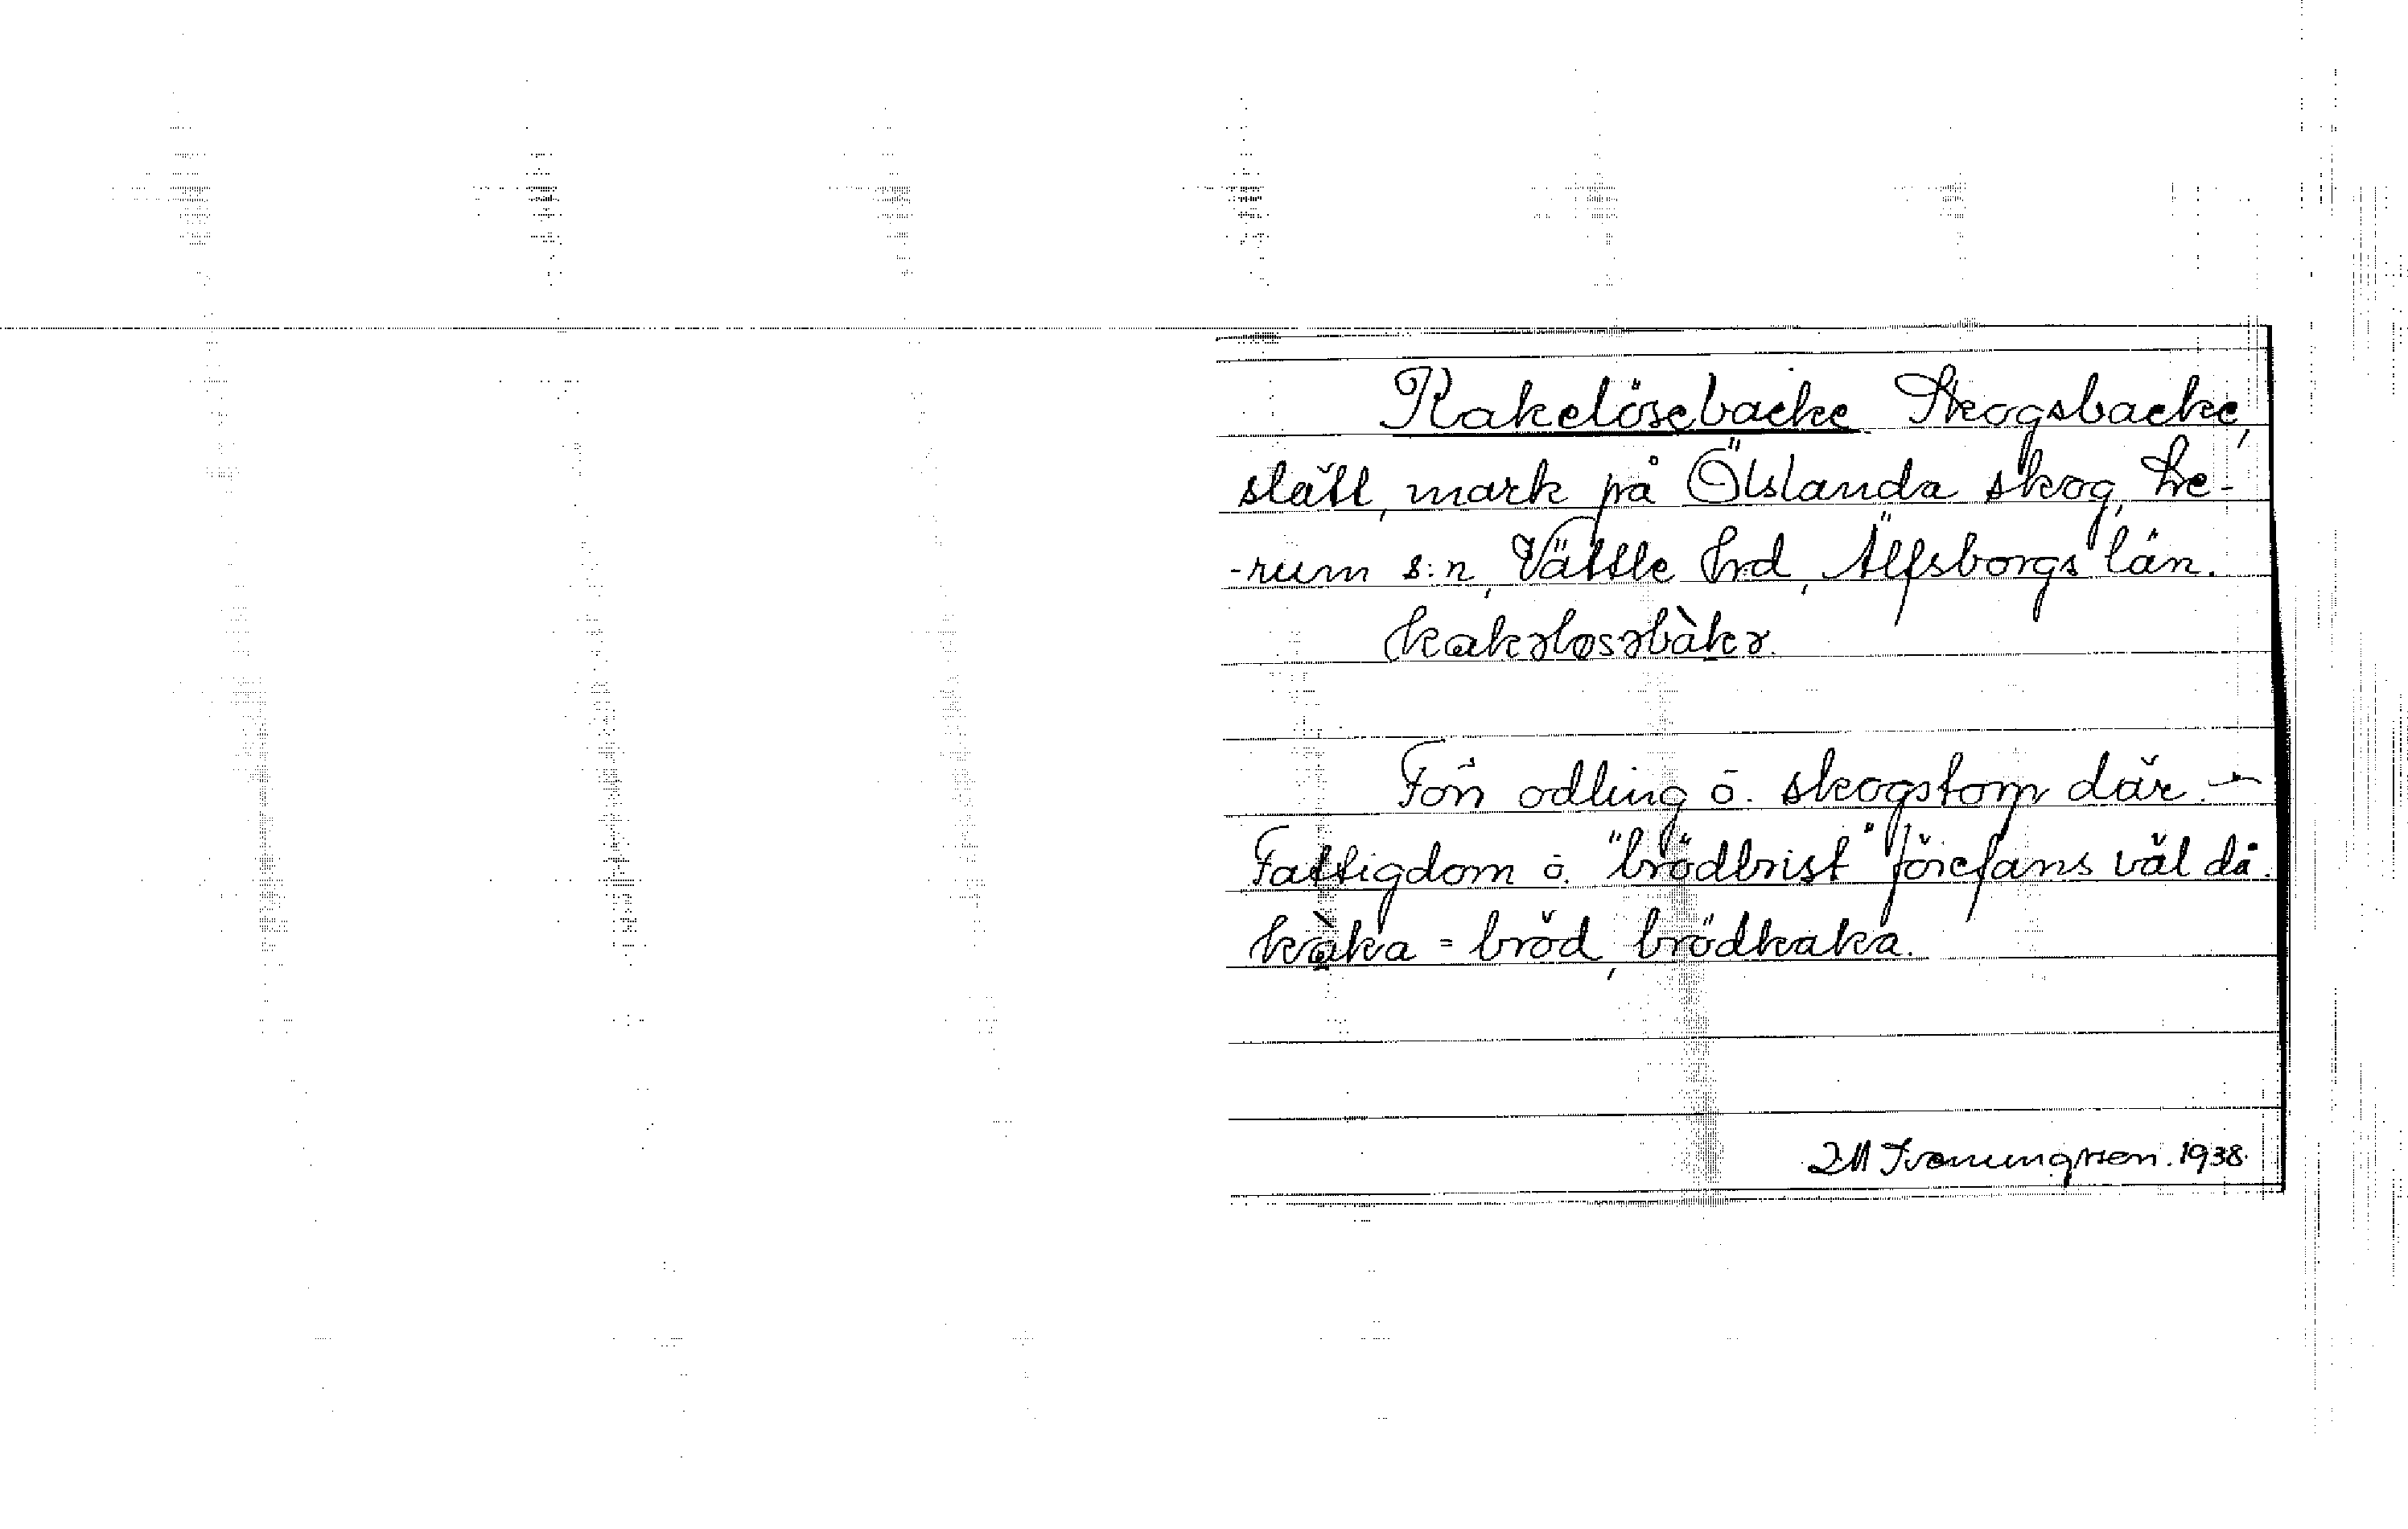 Kakelösebacke Skogsbacke,
slätt, mark på Ölslanda skog, Le-
-rum s:n, Vättle hrd, Älfsborgs län.
kakəløsəbàkə.
Förr odling o. skogstorp där. –
Fattigdom o. "brödbrist" förefans väl då.
kàka = bröd, brödkaka.
1938.